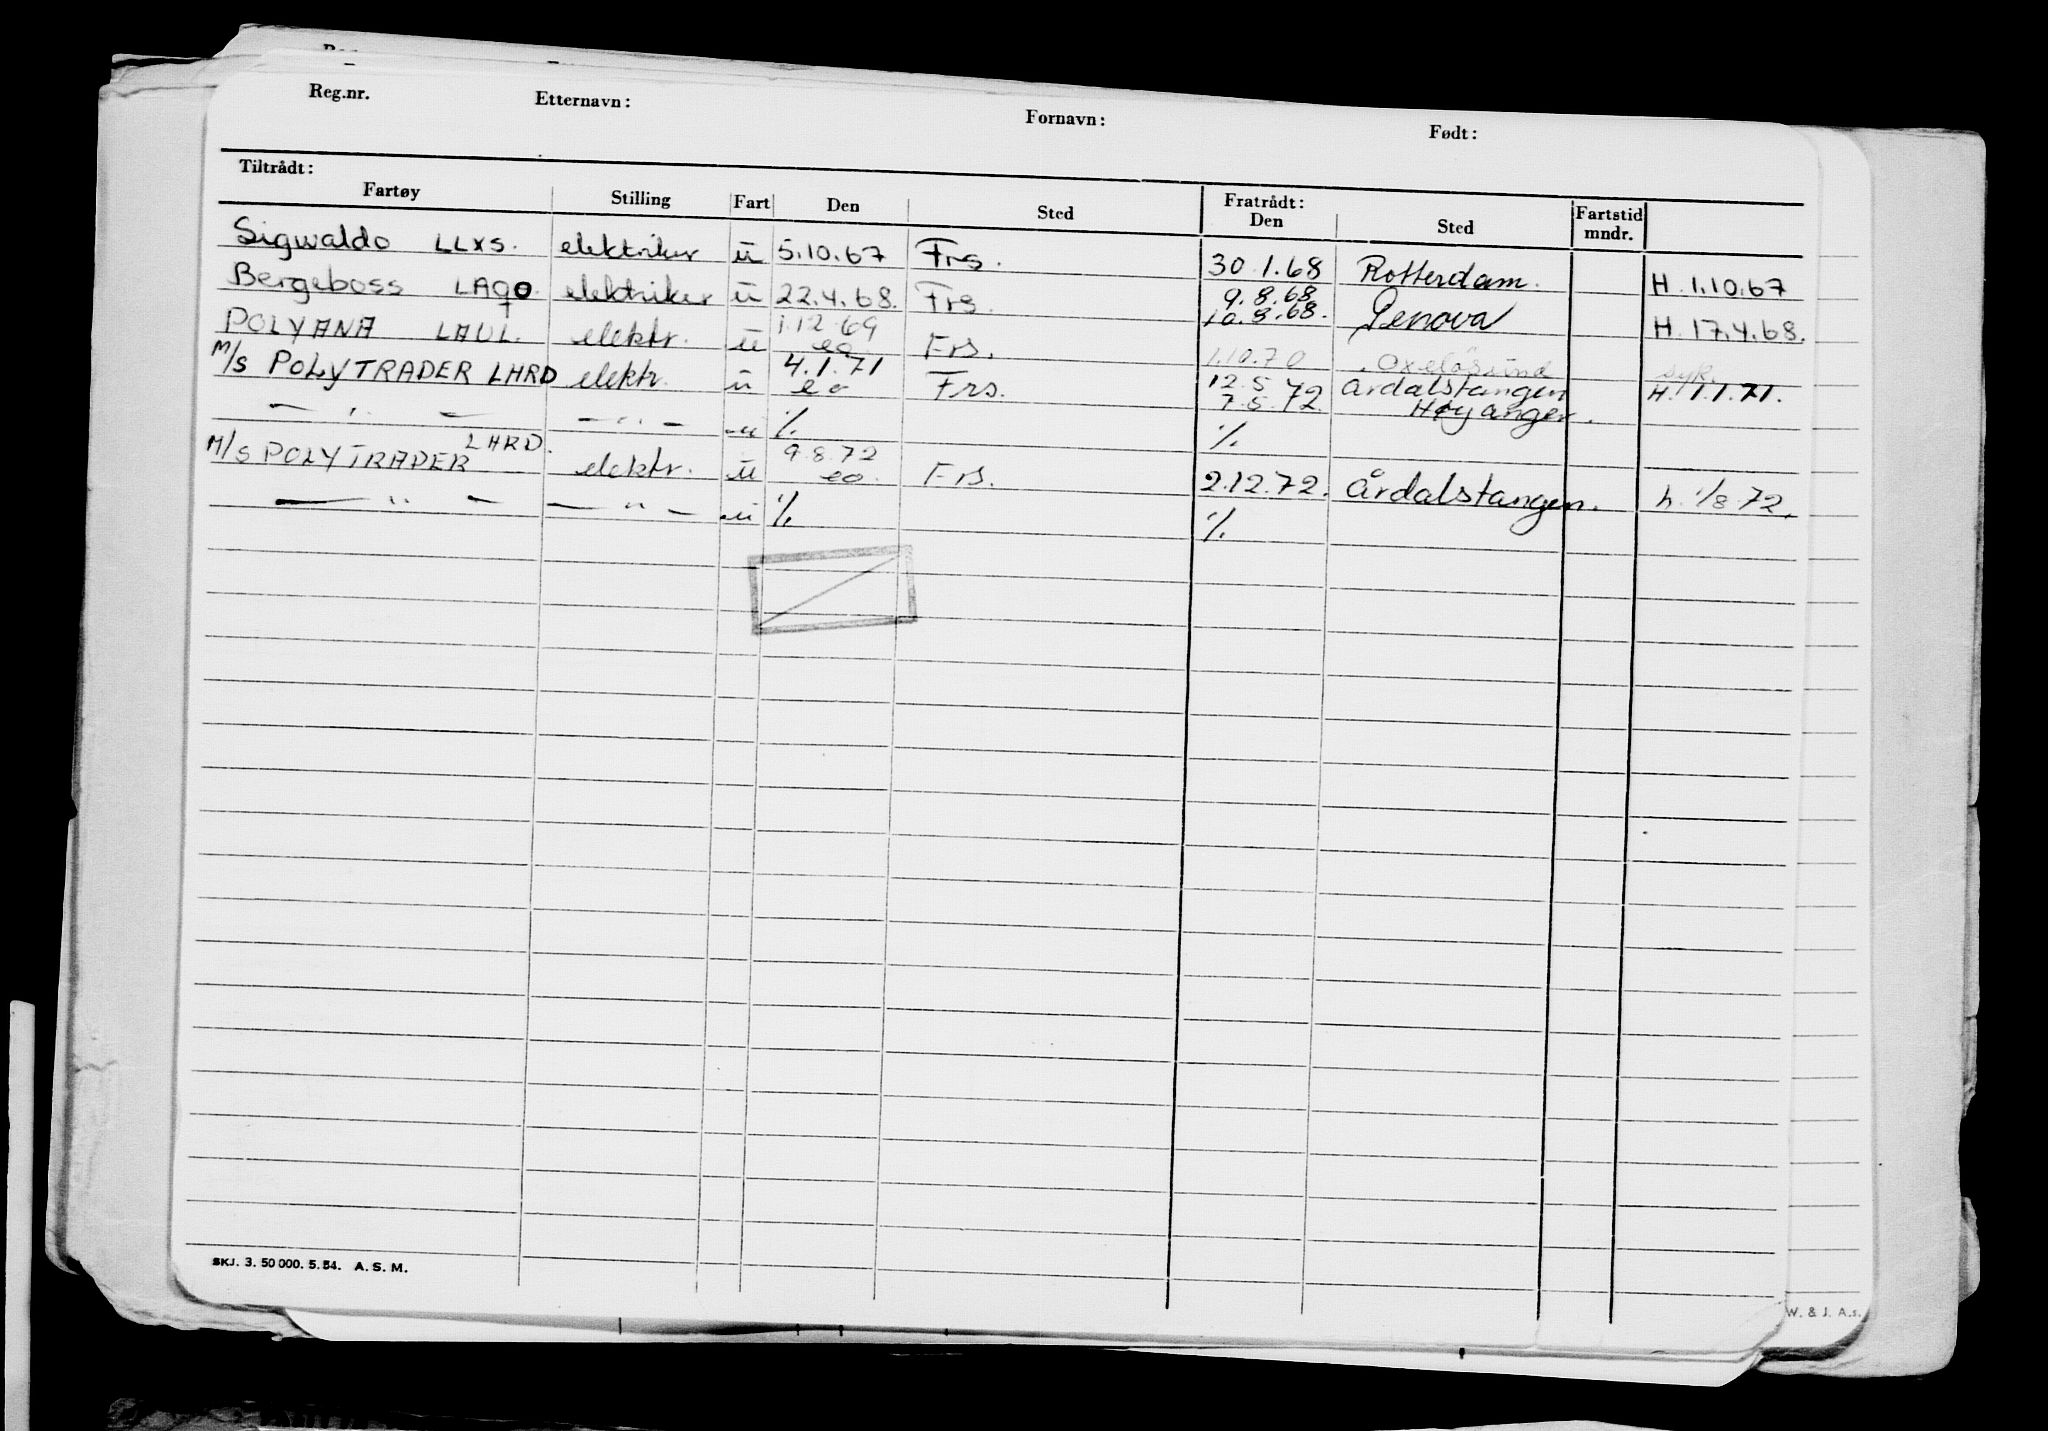 Reg.nr. Etternavn: Fornavn: Født:
Tiltrådt: Fratrådt:
Fartøy Stilling Fart Den Sted Den Sted Fartstid mndr.
Sigwaldo LLXS. elektriker u 5.10.67 Frs. 30.1.68 Rotterdam. H. 1.10.67
Bergeboss LAQO elektriker u 22.4.68. Frs. 9.8.68 10.8.68. Genova H. 17.4.68.
POLYANA LAUL. elektr. u 1.12.69 eo Frs. 1.10.70 Oxelösund syk.
M/S POLYTRADER LHRD elektr. u 4.1.71 eo Frs. 12.5.72 Årdalstangen H. 1.1.71.
7.5.72. Høyanger.
— " — — " — u % %
M/S POLYTRADER LHRD. elektr. u 9.8.72 eo. Frs. 2.12.72. Årdalstangen. h. 1/8.72.
— " — — " — u % %
SKJ. 3. 50 000. 5. 54. A. S. M.
W. & J. A.s.